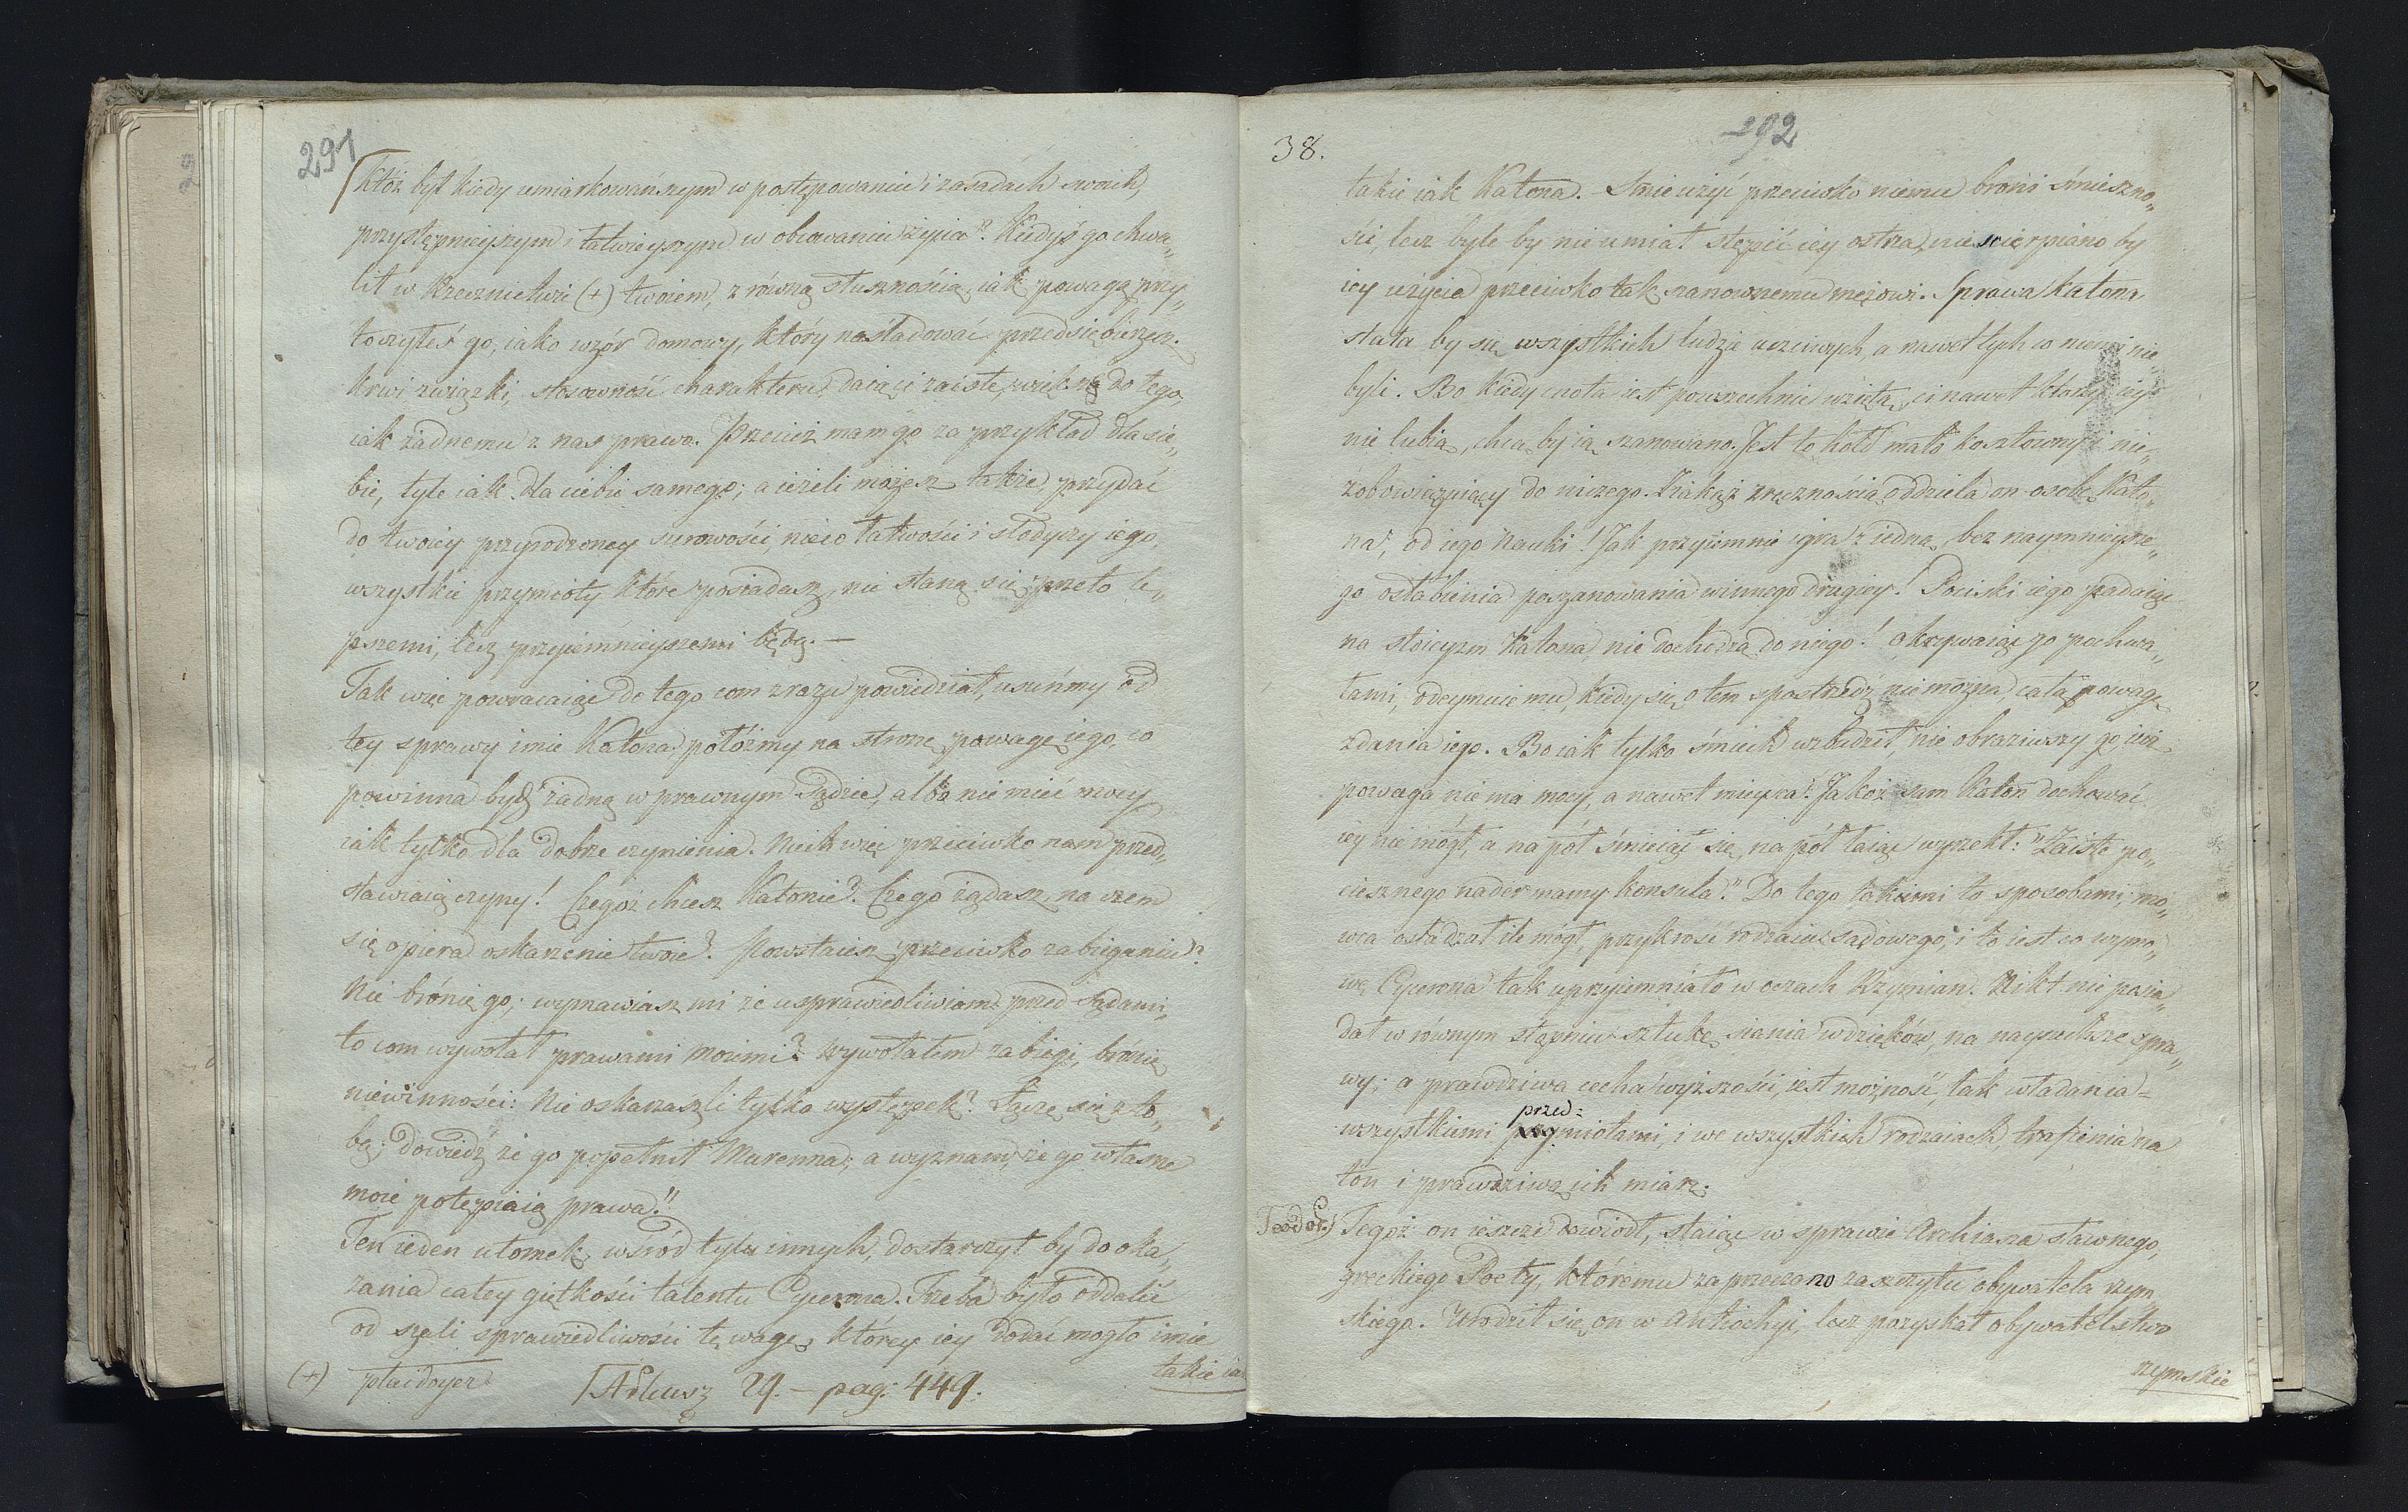 291
Któż był kiedy umiarkowańszym w postępowaniu i zasadach swoich,
przystępnieyszym i łatwieyszym w obcowaniu życia? Kiedyś go chwa„
lił w krzecznictwie (+) twoiem, z równą słusznością, iak powagą przy„
toczyłeś go, iako wzór domowy, który naśladować przedsiębierzesz.
Krwi związki, stosowność charakteru, daią ci zaiste, większe do tego,
iak żadnemu z nas prawo. Przecież mam go za przykład dla sie„
bie, tyle iak dla ciebie samego; a ieżeli możesz także, przydać
do twoiey przyrodzoney surowości, nieco łatwości i słodyczy iego,
wszystkie przymioty które posiadasz, nie staną się przeto le„
pszemi, lecz przyiemnieyszemi będą. —
Tak więc powracaiąc do tego com zrazu powiedział, usuńmy od
tey sprawy imie Katona, połóżmy na stronę powagę iego, co
powinna bydź żadną w prawnym Sądzie, albo nie mieć mocy
iak tylko dla dobrze czynienia. Niech więc przeciwko nam przed„
stawiaią czyny! Czegóż chcesz Katonie? Czego żądasz, na czem
się opiera oskarżenie twoie? Powstaiesz przeciwko zabieganiu?
Nie bronię go; wymawiasz mi że usprawiedliwiam przed Sądami,
to com wywołał prawami moiemi? wywołałem zabiegi, bronię
niewinności: Nie oskarżaszli tylko występek? Łączę się z to„
bą; dowiedź że go popełnił Murenna; a wyznam, że go własne
moie potępiaią prawa."
Ten ieden ułomek, wśród tylu innych, dostarczył by do oka„
zania całey giętkości talentu Cycerona. Trzeba było oddalić
od szali sprawiedliwości tę wagę, którey iey dodać mogło imie
takie ia
(+) plaidoyer
Arkusz 29. — pag: 449.
38.
292
takie iak Katona. Śmie użyć przeciwko niemu broni śmieszno„
ści, lecz byle by nie umiał stępić iey ostrza, nie ścierpiano by
iey użycia przeciwko tak szanownemu mężowi. Sprawa Katona
stała by się wszystkich ludzi uczciwych, a nawet tych co niemi nie
byli. Bo kiedy cnota iest powszechnie wzięta, ci nawet którzy iey
nie lubią, chcą by ią szanowano. Jest to hołd mało kosztowny i nie„
zobowiązuiący do niczego. Z iakąż zręcznością oddziela on osobę Kato„
na, od iego Nauki! Jak przyiemnie igra z iedną, bez naymnieysze„
go osłabienia poszanowania winnego drugiey! Pociski iego padaiąc
na stoicyzm Katona, nie dochodzą do niego! Okrywaiąc go pochwa„
łami, odeymuie mu, kiedy się o tem spostrzedz nie można, całą powagę
zdania iego. Bo iak tylko śmiech wzbudził, nie obraziwszy go, iuż
powaga nie ma mocy, a nawet mieysca. Jakoż sam Katon dochować
iey nie mógł, a na pół śmieiąc się, na pół łaiąc wyrzekł: "Zaiste po„
ciesznego nader mamy konsula." Do tego takiemi to sposobami, mo„
wca osładzał ile mógł, przykrość rodzaiu sądowego, i to iest co wymo„
wę Cycerona tak uprzyiemniało w oczach Rzymian. Nikt nie posia„
dał w równym stopniu sztukę siania wdzięków, na naysuchsze spra„
wy; a prawdziwa cecha wyższości, iest możność, tak władania
przed=
wszystkiemi przymiotami, i we wszystkich rodzaiach, trafienia na
ton i prawdziwą ich miarę.
Teodor.) Tegoż on ieszcze dowiodł, staiąc w sprawie Archiasza sławnego,
greckiego Poety, któremu zaprzeczano zaszczytu obywatela rzym„
skiego. Urodził się on w Antiochyi, lecz pozyskał obywatelstwo
rzymskie